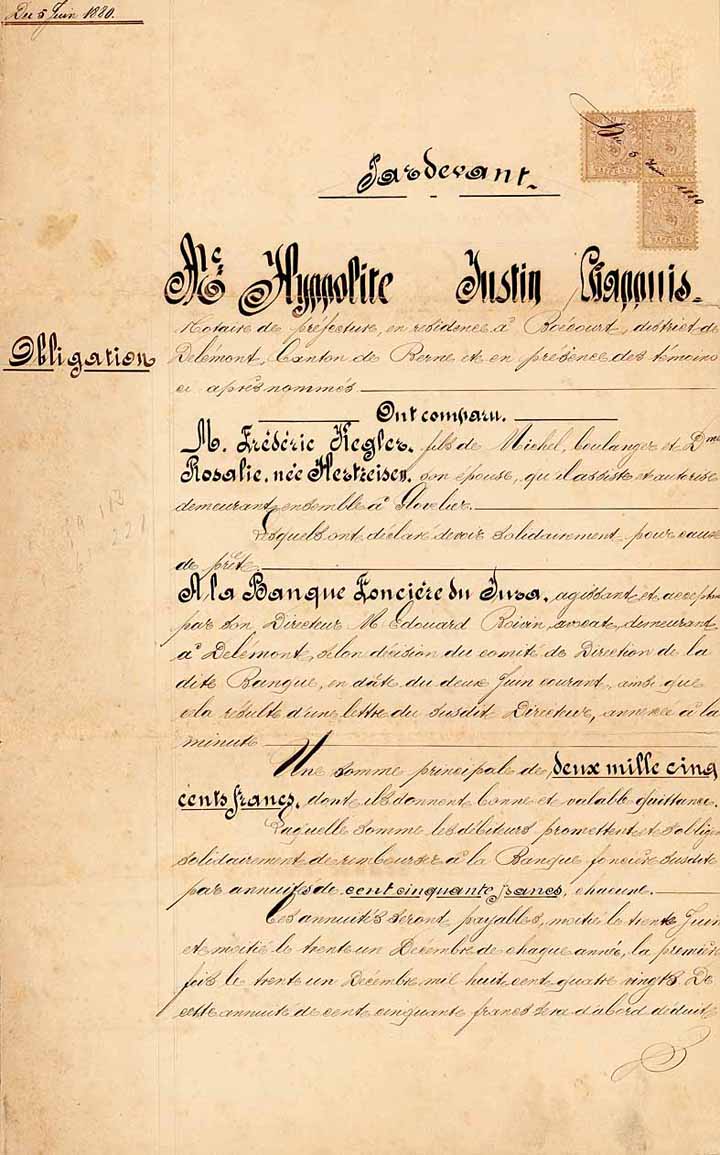 Du 5 Juin 1880.
Pardevant.
Me. Hyppolite Justin Chappuis.
Notaire de préfecture, en résidence à Boécourt, district de
Obligation
Delémont, Canton de Berne et en présence des témoins
ci après nommés
Ont comparu.
M. Frédéric Kegler, fils de Michel, boulanger et Dme
Rosalie, née Hertzeisen, son épouse, qu'il assiste et autorise
demeurant ensemble à Glovelier.
Lesquels ont déclaré devoir solidairement pour cause
de prêt.
A la Banque Foncière du Jura, agissant et
par son Directeur M. Edouard Boivin, avocat, demeurant
à Delémont, selon décision du comité de Direction de la
dite Banque, en date du deux Juin courant, ainsi que
cela résulte d'une lettre du susdit Directeur, annexée à la
minute
Une somme principale de deux mille cinq
cents francs, dont ils donnent bonne et valable quittance.
Laquelle somme les débiteurs promettent et s'oblig
solidairement de rembourser à la Banque foncière susdite
par annuités de cent cinquante francs, chacune.
Ces annuités seront payables, moitié le trente Juin
et moitié le trente un Décembre de chaque année, la première
fois le trente un Décembre mil huit cent quatre vingts. De
cette annuité de cent cinquante francs sera d'abord déduit